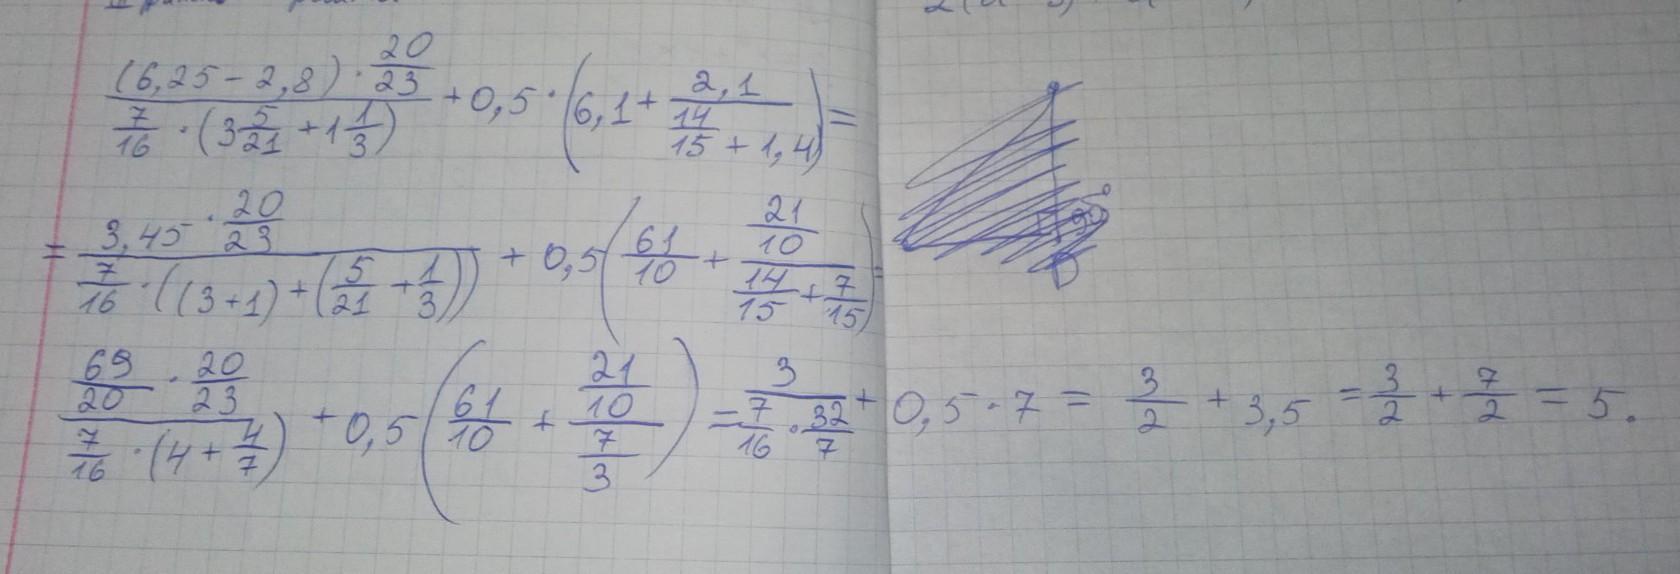 (6,25 - 2,8) · 20/23 / 7/16 · (3 5/21 + 1 1/3) + 0,5 · (6,1 + 2,1 / 14/15 + 1,4) =
= 3,45 · 20/23 / 7/16 · ((3+1) + (5/21 + 1/3)) + 0,5 (61/10 + 21/10 / 14/15 + 7/15) =
69/20 · 20/23 / 7/16 · (4 + 4/7) + 0,5 (61/10 + 21/10 / 7/3) = 3 / 7/16 · 32/7 + 0,5 · 7 = 3/2 + 3,5 = 3/2 + 7/2 = 5.